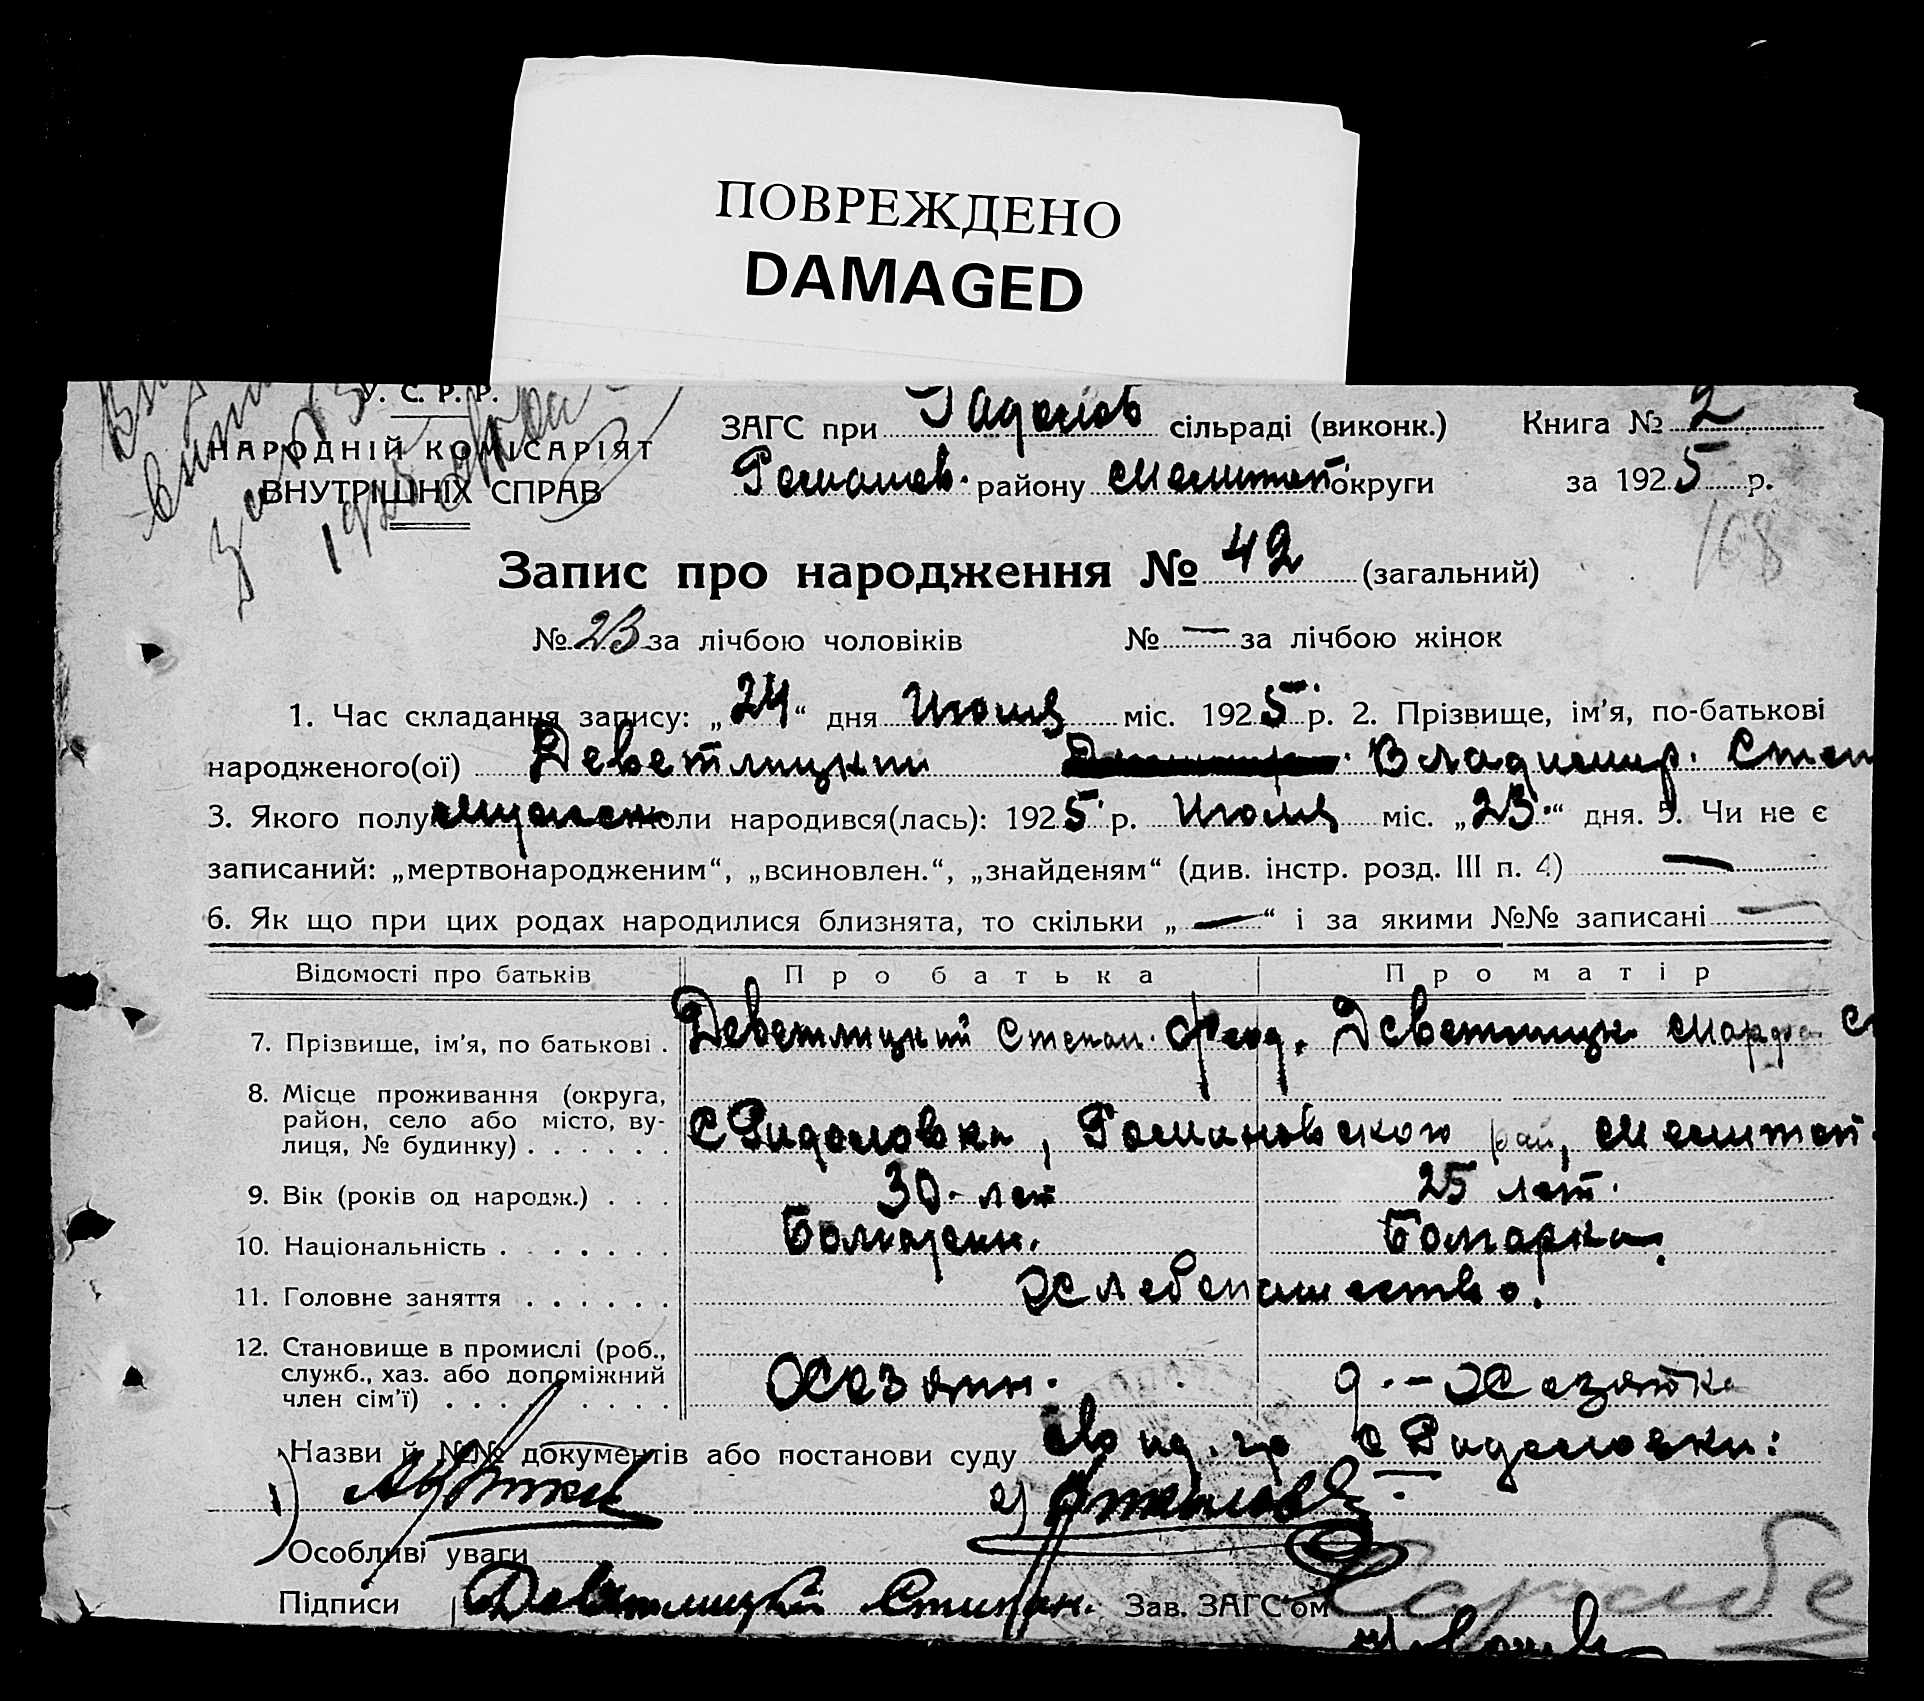 ПОВРЕЖДЕНО
DAMAGED
У. С. Р. Р.
НАРОДНІЙ КОМІСАРІЯТ
ВНУТРІШНІХ СПРАВ
ЗАГС при сільраді (виконк.)
Романов. району Мелитоп. округи
Книга № 2
за 1925 р.
168
Запис про народження № 42 (загальний)
№ 23 за лічбою чоловіків № — за лічбою жінок
1. Час складання запису: „24“ дня Июля міс. 1925 р. 2. Прізвище, ім’я, по-батькові
народженого(ої) Деветлицкий Владимир. Степ
3. Якого полу мужеск коли народився(лась): 1925 р. Июля міс. „23“ дня. 5. Чи не є
записаний: „мертвонародженим“, „всиновлен.“, „знайденям“ (див. інстр. розд. III п. 4) —
6. Як що при цих родах народилися близнята, то скільки „—“ і за якими №№ записані —
Відомості про батьків Про батька Про матір
7. Прізвище, ім’я, по батькові . Деветлицкий Степан. Феод. Деветлицк Марфа
8. Місце проживання (округа,
район, село або місто, ву-
лиця, № будинку) . . . . . . с Радоловка, Романовского рай, Мелитоп.
9. Вік (років од народж.) . . . 30 лет 25 лет.
10. Національність . . . . . . . Болгарин. Болгарка.
11. Головне заняття . . . . . . Хлебопашество.
12. Становище в промислі (роб.,
служб., хаз. або допоміжний
член сім’ї) . . . . . . . . . Хозяин. д.- Хозяйка
Назви й №№ документів або постанови суду
1) 2)
Особливі уваги
Підписи Деветлицкий Степан. Зав. ЗАГС’ом